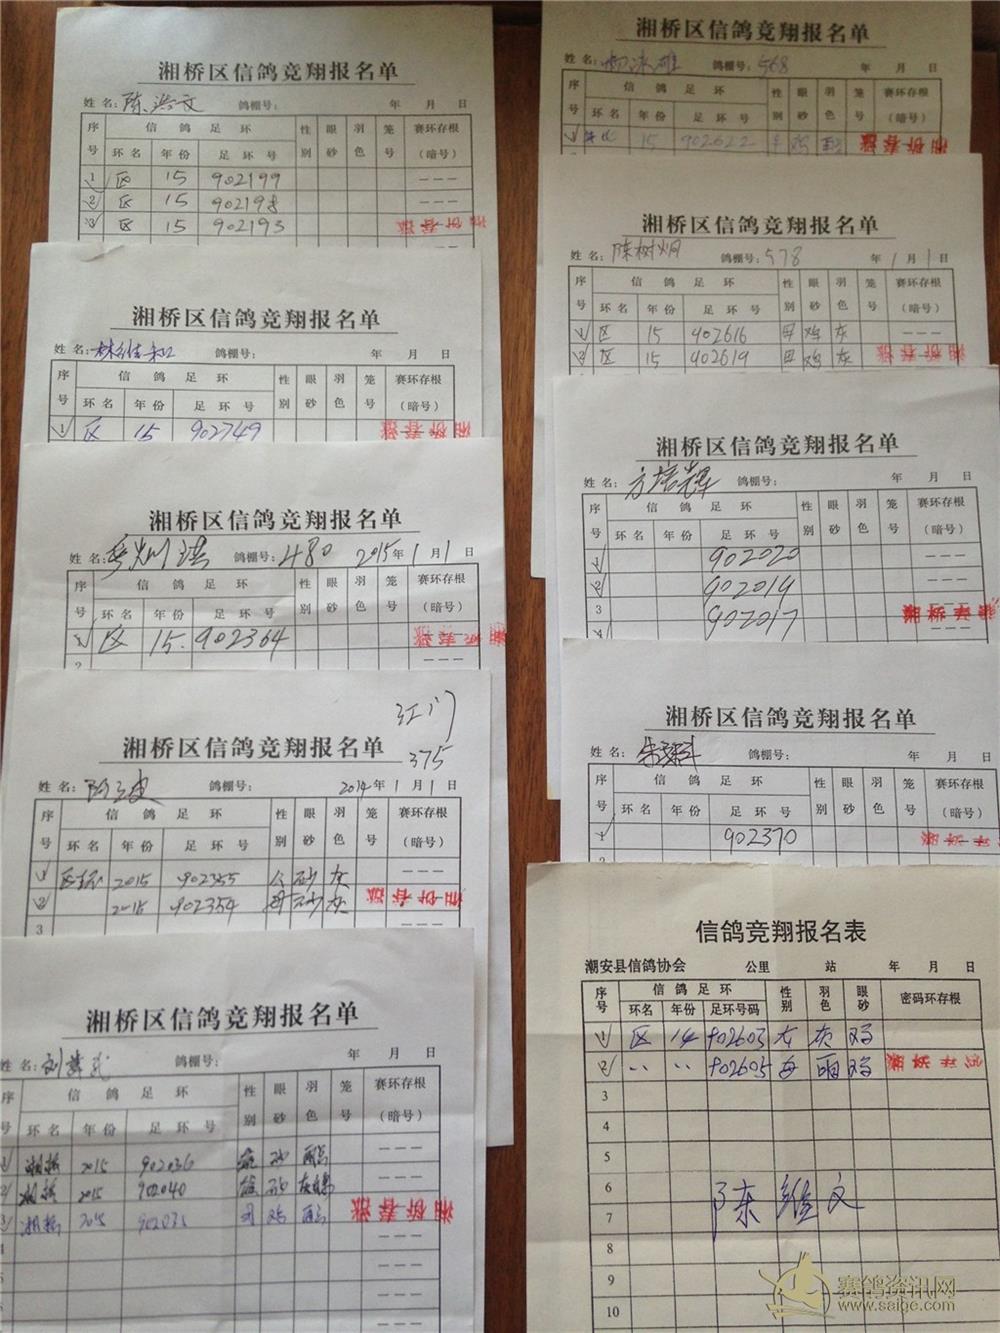 湘桥区信鸽竞翔报名单
姓 名: 陈洪文 鸽棚号: 年 月 日
序号 信 鸽 足 环 性别 眼砂 羽色 笼号 赛环存根(暗号)
环名 年份 足 环 号
1 区 15 902199
2 区 15 902198
3 区 15 902193
湘桥区信鸽竞翔报名单
姓 名: 鸽棚号: 年 月 日
序号 信 鸽 足 环 性别 眼砂 羽色 笼号 赛环存根(暗号)
环名 年份 足 环 号
1 区 15 902749
湘桥区信鸽竞翔报名单
姓 名: 鸽棚号: 480 2015年 1月 1日
序号 信 鸽 足 环 性别 眼砂 羽色 笼号 赛环存根(暗号)
环名 年份 足 环 号
1 区 15 902364
2
江门
375
湘桥区信鸽竞翔报名单
姓 名: 鸽棚号: 2014年 1月 1日
序号 信 鸽 足 环 性别 眼砂 羽色 笼号 赛环存根(暗号)
环名 年份 足 环 号
1 区环 2015 902355 公 砂 灰
2 2015 902354 母 砂 灰
3
湘桥区信鸽竞翔报名单
姓名: 鸽棚号: 年 月 日
序号 信 鸽 足 环 性别 眼砂 羽色 笼号 赛环存根(暗号)
环名 年份 足 环 号
1 湘桥 2015 902036 砂
2 湘桥 2015 902040 砂
3 湘桥 2015 鸡
湘桥区信鸽竞翔报名单
姓 名: 鸽棚号: 568 年 月 日
序号 信 鸽 足 环 性别 眼砂 羽色 笼号 赛环存根(暗号)
环名 年份 足 环 号
1 15 902622 鸡 雨
湘桥区信鸽竞翔报名单
姓 名: 陈树炯 鸽棚号: 578 年 1月 1日
序号 信 鸽 足 环 性别 眼砂 羽色 笼号 赛环存根(暗号)
环名 年份 足 环 号
1 区 15 902616 母 鸡 灰
2 区 15 902619 母 鸡 灰
湘桥区信鸽竞翔报名单
姓 名: 方培辉 鸽棚号: 年 月 日
序号 信 鸽 足 环 性别 眼砂 羽色 笼号 赛环存根(暗号)
环名 年份 足 环 号
1 902020
2 902019
3 902017
4
湘桥区信鸽竞翔报名单
姓 名: 鸽棚号: 年 月 日
序号 信 鸽 足 环 性别 眼砂 羽色 笼号 赛环存根(暗号)
环名 年份 足 环 号
1 902370
信鸽竞翔报名表
潮安县信鸽协会 公里 站 年 月 日
序号 信 鸽 足 环 性别 羽色 眼砂 密码环存根
环名 年份 足环号码
1 区 14 902603 灰 鸡
2 902605 母 雨 鸡
3
4
5
6
7
陈维文
8
9
10
赛鸽资讯网
www.saige.com